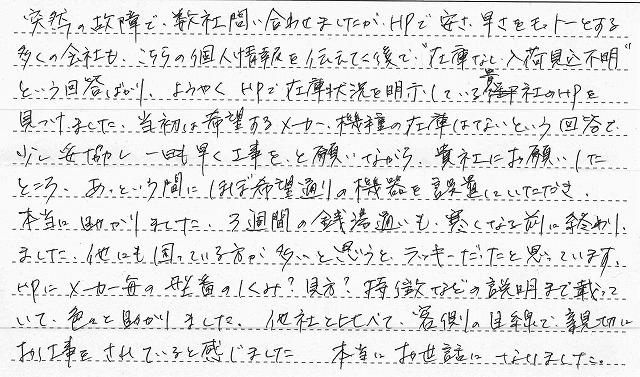 突然の故障で、数社問い合わせましたが、HPで安さ、早さをモットーとする
多くの会社も、こちらの個人情報を伝えてた後で、"在庫なし、入荷見込不明"
という回答ばかり、ようやくHPで在庫状況を明示している貴社のHPを
見つけました。当初は希望するメーカー、機種の在庫はないという回答で、
少し妥協し一日も早く工事を、と願いながら、貴社にお願いした
ところ、あっという間にほぼ希望通りの機器を設置していただき、
本当に助かりました。3週間の銭湯通いも、寒くなる前に終わり
ました。他にも困っている方が多いと思うと、ラッキーだったと思っています。
HPにメーカー毎の型番のしくみ?見方?特徴などの説明まで載って
いて、色々と助かりました。他社と比べて、客側の目線で、親切に
お工事をされていると感じました 本当にお世話になりました。